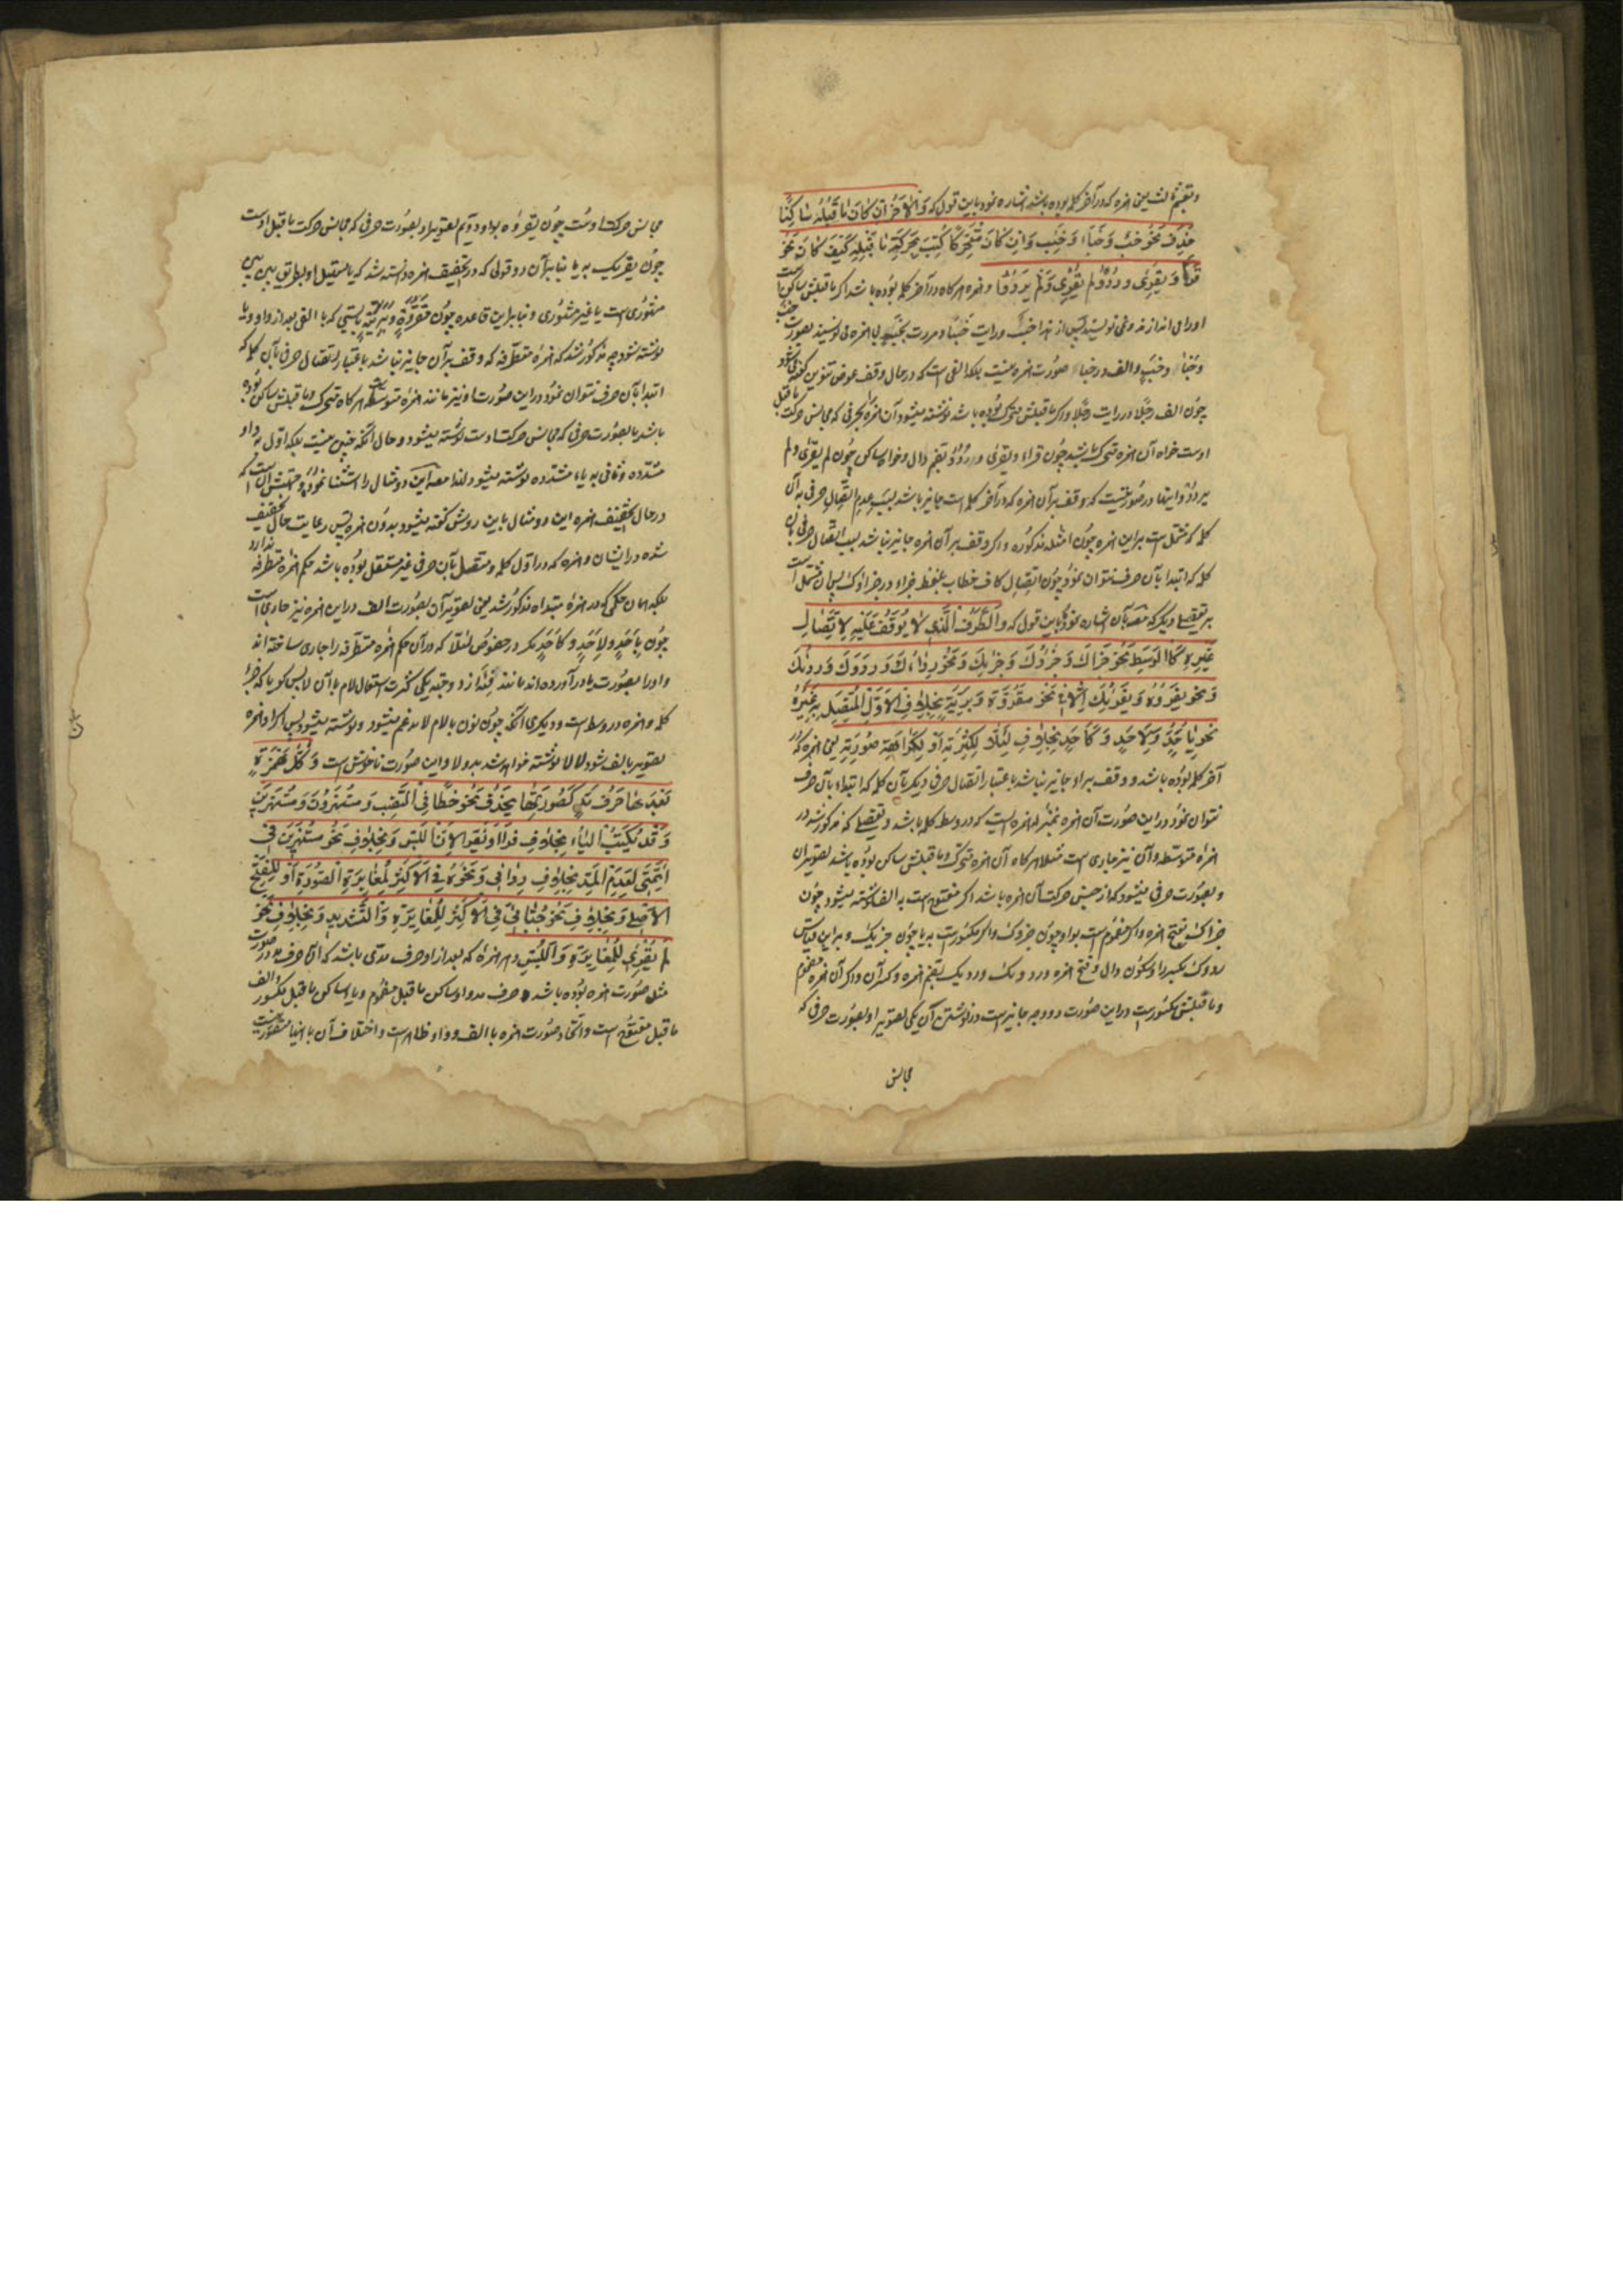 وبقیم ثالث یعنی همزه که در آخر کلمه بوده باشد اشاره نمود باین قول که وَالْآخِرُ اِنْ كَانَ مَا قَبْلَهُ سَاكِنًا
حُذِفَ نَحْوُ خَبْءٌ وَخَبْأً وَخَبْءٍ وَاِنْ كَانَ مُتَحَرِّكًا كُتِبَ بِحَرَكَةِ مَا قَبْلَهُ كَيْفَ كَانَ نَحْوُ
قَرَأَ وَيُقْرِئُ وَرَدُؤَ وَلَمْ يُقْرِئْ وَلَمْ يَرْدُؤْ و همزه هرگاه در آخر کلمه بوده باشد اگر ماقبلش ساکن است
او را می اندازند و نمی نویسند پس از هذا خبء و رایت خبأ و مررت بخبء بی همزه می نویسند بصورت خب
وخبا وخب والف در خبا صورت همزه نیست بلکه الفی است که در حال وقف عوض تنوین گفته می شود
چون الف رجلا در رایت رجلا و اگر ماقبلش متحرک بوده باشد نوشته میشود آن همزه بحرفی که مجانس حرکت ماقبل
اوست خواه آن همزه متحرک باشد چون قرأ ویقرئ وردؤ بضم دال و خواه ساکن چون لم یقرئ ولم
یردؤ و اینها در صورتیست که وقف بر آن همزه که در آخر کلمه است جایز باشد بسبب عدم اتصال حرفی به آن
کلمه که مشتمل است بر این همزه چون امثله مذکوره و اگر وقف بر آن همزه جایز نباشد بسبب اتصال حرفی بآن
کلمه که ابتدا بآن حرف نتوان نمود چون اتصال کاف خطاب بلفظ جزاء در جزاؤک پس آن مشتمل است
بر تفصیلی دیگر که مصه بآن اشاره نمود باین قول که وَالطَّرَفُ الَّذِي لَا يُوقَفُ عَلَيْهِ لِاتِّصَالِ
غَيْرِهِ كَالْوَسَطِ نَحْوُ جُزْأَكَ وَجُزْؤُكَ وَجُزْئِكَ وَنَحْوُ رِدْأَكَ وَرِدْؤُكَ وَرِدْئِكَ
وَنَحْوُ يَقْرَؤُهُ وَيُقْرِئُكَ اِلَّا فِي نَحْوِ مَقْرُوَّةٍ وَبَرِيَّةٍ بِخِلَافِ الْاَوَّلِ الْمُتَّصِلِ بِهِ غَيْرُهُ
نَحْوُ بِأَحَدٍ وَلِأَحَدٍ وَكَأَحَدٍ بِخِلَافِ لِئَلَّا لِكَثْرَتِهِ اَوْ لِكَرَاهَةِ صُورَتِهِ یعنی همزه که در
آخر کلمه بوده باشد و وقف بر او جایز نباشد باعتبار اتصال حرفی دیگر بآن کلمه که ابتداء بآن حرف
نتوان نمود در این صورت آن همزه بمنزله همزه ایست که در وسط کلمه باشد و تفصیلی که مذکور شد در
همزه متوسطه در آن نیز جاری است مثلا هرگاه آن همزه متحرک و ماقبلش ساکن بوده باشد تصویر آن
بصورت حرفی میشود که از جنس حرکت آن همزه باشد اگر مفتوح است به الف نوشته میشود چون
جزاک بفتح همزه و اگر مضموم است بواو چون جزوک و اگر مکسور است به یا چون جزیک و بر این قیاس
ردوک بکسر را و سکون دال و فتح همزه وردوک وردیک بضم همزه و کسر آن و اگر آن همزه مضموم
و ماقبلش مکسور است در این صورت دو وجه جایز است در نوشتن آن یکی تصویر او بصورت حرفی که
مجانس
مجانس حرکت اوست چون یقروه بواو و دویم تصویر او بصورت حرفی که مجانس حرکت ماقبل اوست
چون یقریک به یا بنا بر آن دو قولی که در تخفیف همزه دانسته شد که یا مستقل او بطریق بین بین
مشهوری است یا غیر مشهوری و بنا بر این قاعده چون مقروة و بریة بایستی که با الفی بعد از واو و یا
نوشته شود چه مذکور شد که همزه متطرفه که وقف بر آن جایز نباشد باعتبار اتصال حرفی بآن کلمه که
ابتدا بآن حرف نتوان نمود در این صورت او نیز مانند همزه متوسطه است هرگاه متحرک و ماقبلش ساکن بوده
باشد بصورت حرفی که مجانس حرکت اوست نوشته میشود و حال آنکه چنین نیست بلکه اول به واو
مشدده و ثانی به یاء مشدده نوشته میشود لهذا مصه این دو مثال را استثنا نمود و جهتش آنست که
در حال تخفیف همزه این دو مثال باین روش گفته میشود بدون همزه پس رعایت حال تخفیف
شده در ایشان و همزه که در اول کلمه و متصل بآن حرفی غیر مستقل بوده باشد حکم همزه متطرفه ندارد
بلکه همان حکمی که در همزه مبتداه مذکور شد یعنی تصویر آن بصورت الف در این همزه نیز جاری است
چون بِأَحَدٍ و لِأَحَدٍ و كَأَحَدٍ مگر در خصوص لئلّا که در آن حکم همزه متطرفه را جاری ساخته اند
و او را بصورت یا در آورده اند مانند فئة از دو جهت یکی کثرت استعمال لام با آن لا پس گویا که جزء
کلمه و همزه در وسط است و دیگری آنکه چون نون بالام لا مدغم میشود و نوشته میشود پس اگر او همزه
تصویر بالف شود لالا نوشته خواهد شد بدو لا و این صورت ناخوش است وَكُلُّ هَمْزَةٍ
بَعْدَهَا حَرْفُ مَدٍّ كَصُورَتِهَا يُحْذَفُ نَحْوُ خَطَأً فِي النَّصْبِ وَمُسْتَهْزِؤُنَ وَمُسْتَهْزِئِينَ
وَقَدْ تُكْتَبُ الْيَاءُ بِخِلَافِ قَرَأَا وَيَقْرَأَانِ لِلَّبْسِ وَبِخِلَافِ نَحْوِ مُسْتَهْزِئَيْنِ فِي
الْمُثَنَّى لِعَدَمِ الْمَدِّ بِخِلَافِ رِدَائِي وَنَحْوِهِ فِي الْاَكْثَرِ لِمُغَايَرَةِ الصُّورَةِ اَوْ لِلْفَتْحِ
الْاَصْلِيِّ وَبِخِلَافِ نَحْوِ حِنَّائِيٍّ فِي الْاَكْثَرِ لِلْمُغَايَرَةِ وَالتَّشْدِيدِ وَبِخِلَافِ نَحْوِ
لَمْ تُقْرِئِي لِلْمُغَايَرَةِ وَاللَّبْسِ و هر همزه که بعد از او حرف مدی باشد که آن حرف مد در صورت
مثل صورت همزه بوده باشد و حرف مد واو ساکن ماقبل مضموم و یا ساکن ماقبل مکسور و الف
ماقبل مفتوح است و اتحاد صورت همزه با الف و واو ظاهر است و اختلاف آن با اینها متصور نیست